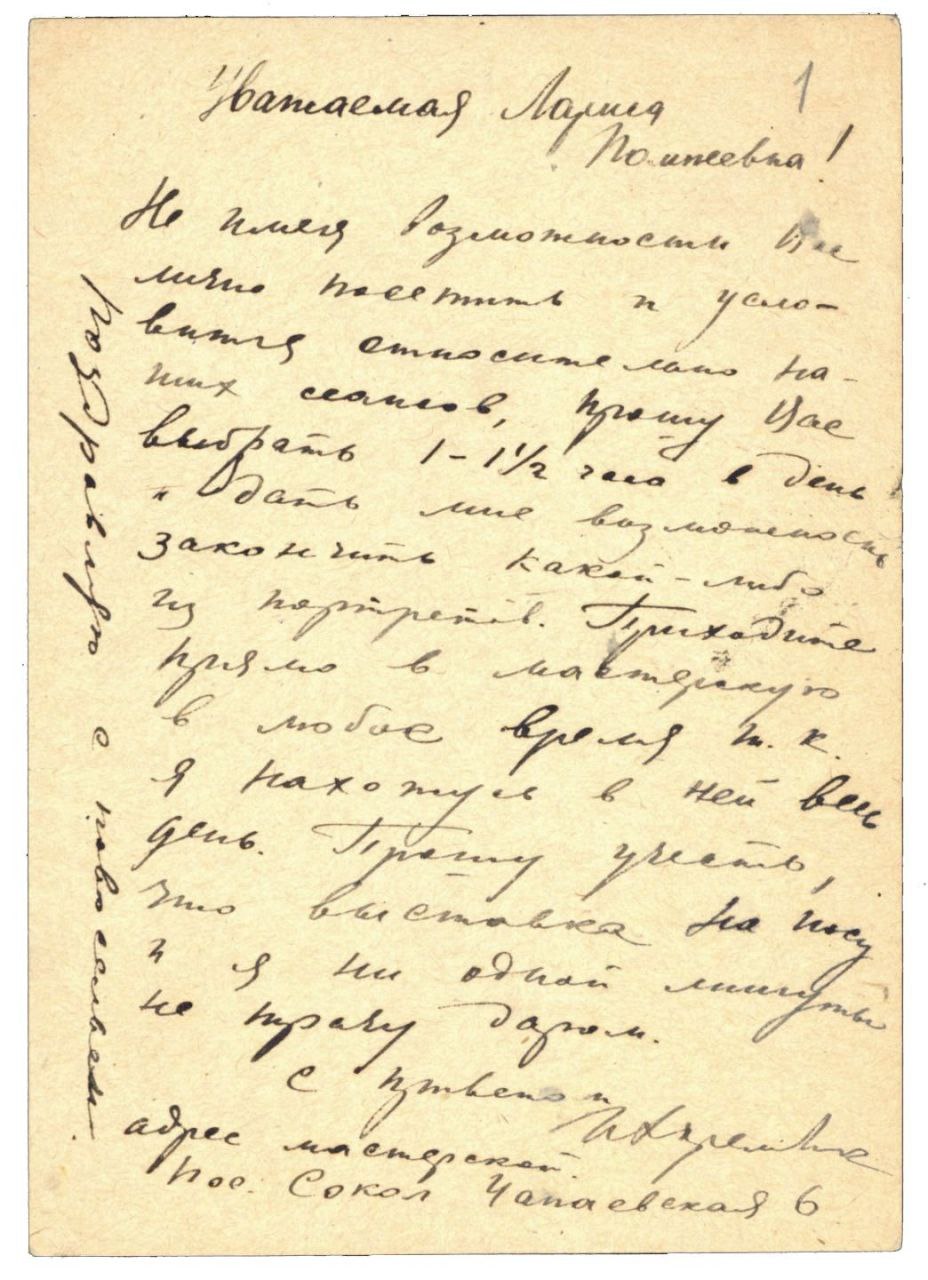 1
Уважаемая Лариса
!
Не имея возможности Вас
лично посетить и усло-
вится относительно на-
ших сеансов, прошу Вас
выбрать 1-1½ часа в день
и дать мне возможность
закончить какой-либо
из портретов. Приходите
прямо в мастерскую
в любое время т.к.
я нахожусь в ней весь
день. Прошу учесть,
что выставка на носу
и я ни одной минуты
не трачу даром.
С приветом
адрес мастерской.
пос. Сокол Чапаевская 6
поздравляю с новосельем.